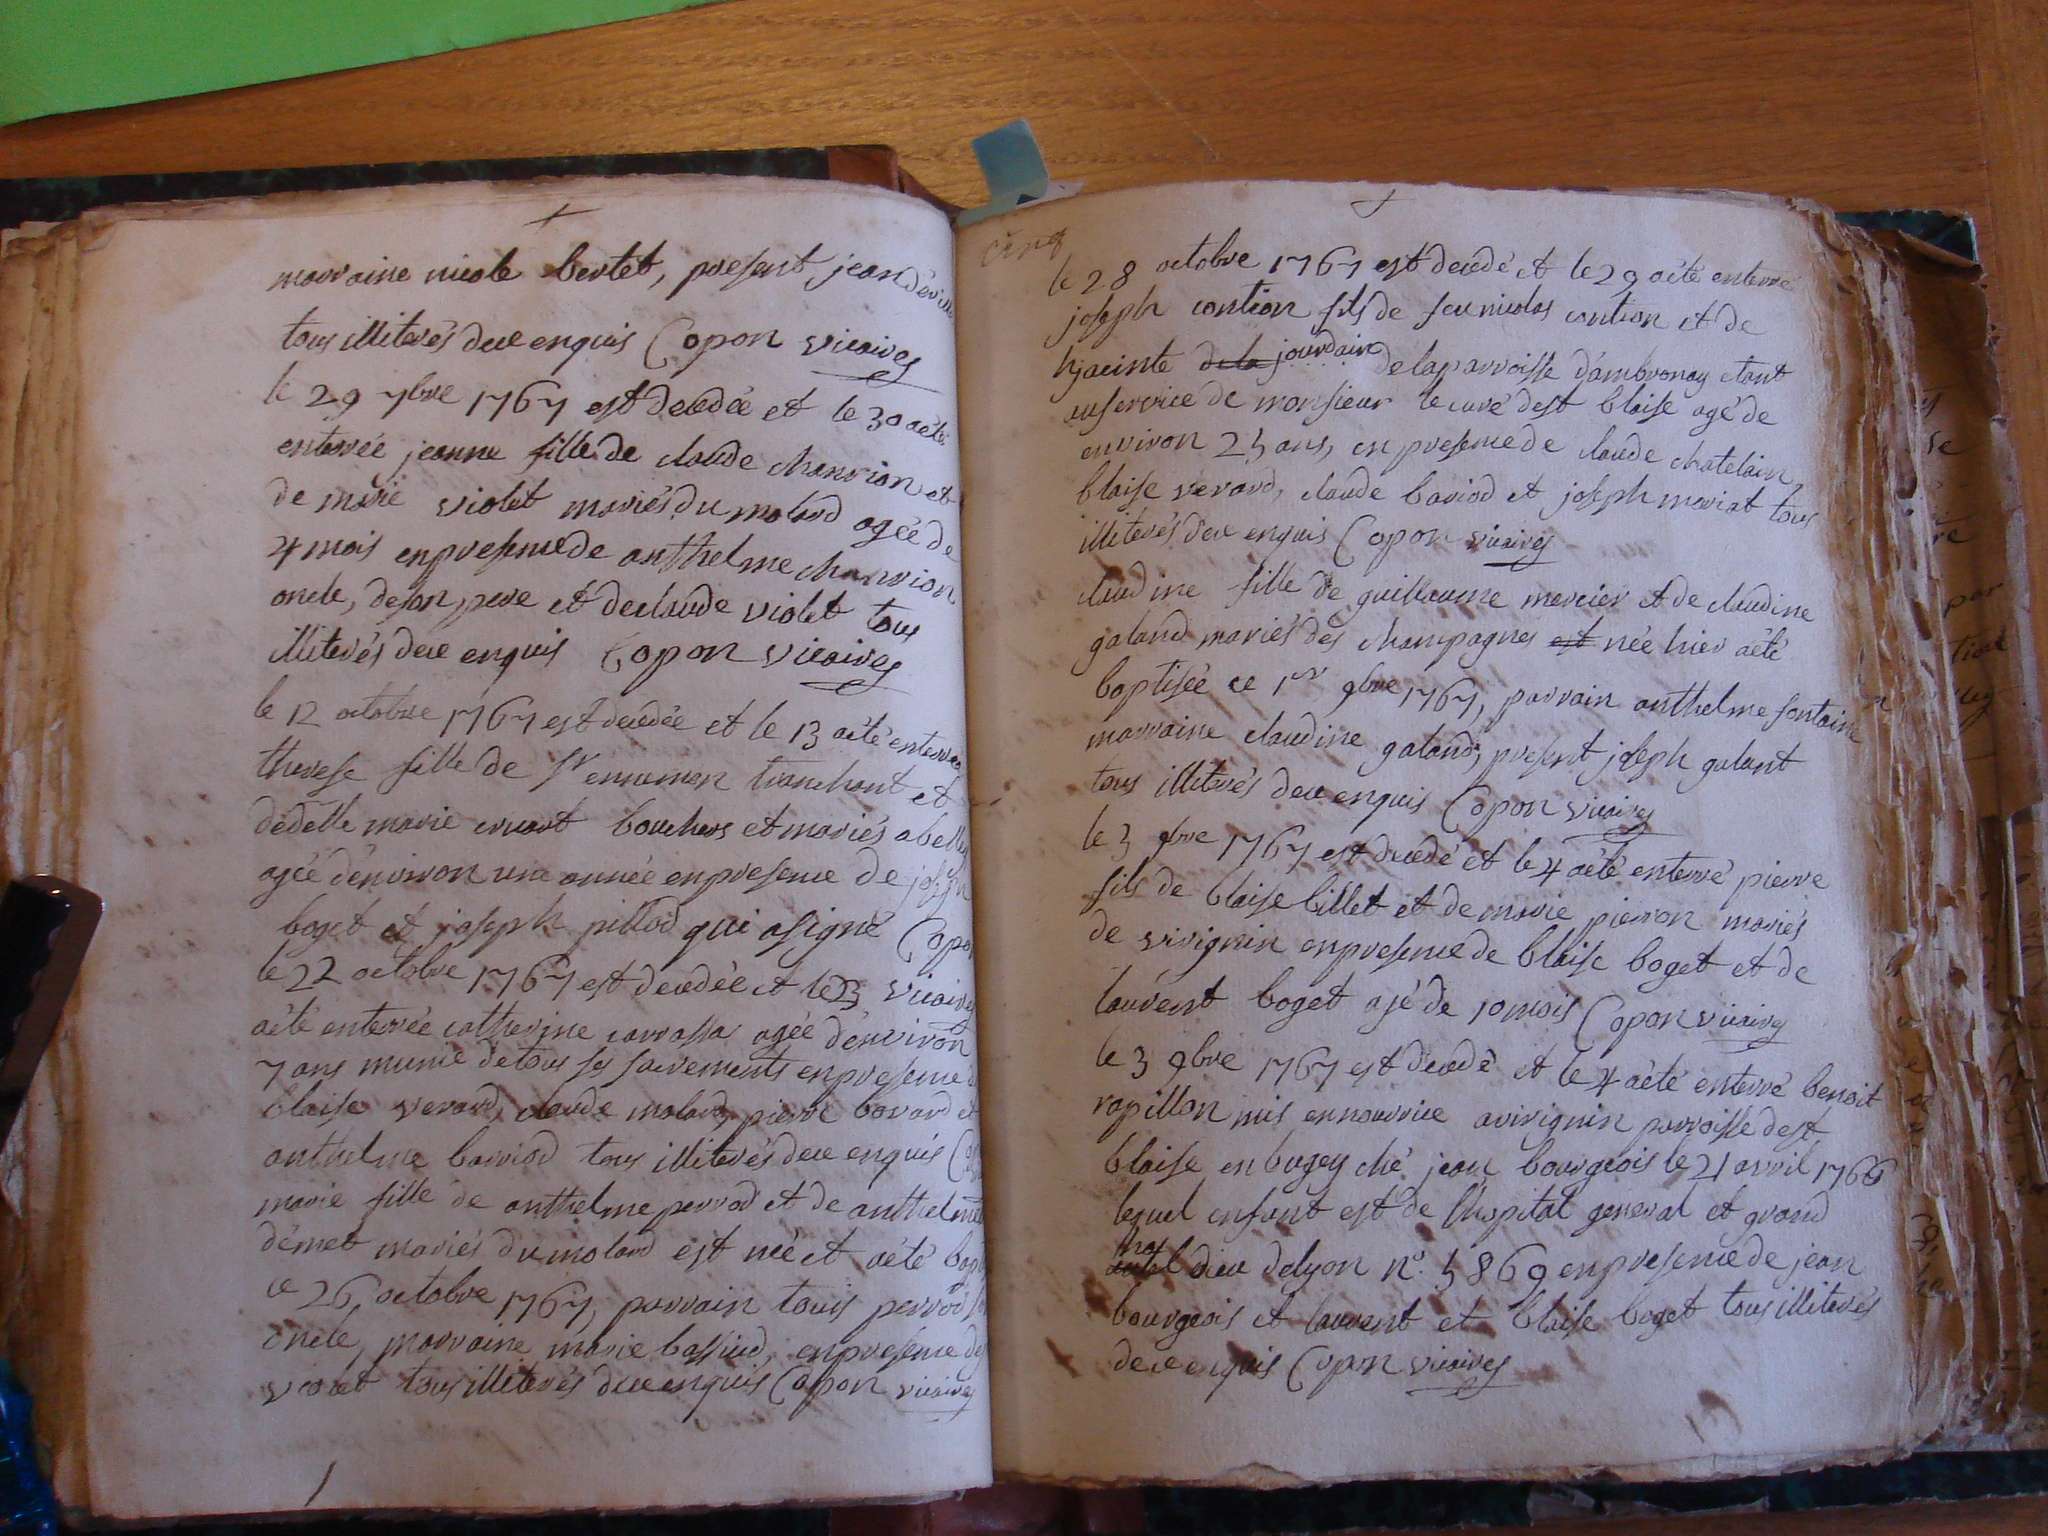 marraine nicole bertet, present jean
tous illiterés deue enquis Copon vicaires
le 29 7bre 1767 est decedée et le 30 aété
enterrée jeanne fille de claude chanvion et
de marie violet mariés du molard agée de
4 mois en presence de anthelme chanvion
oncle, de son pere et de claude violet tous
illiterés deue enquis Copon vicaires
le 12 octobre 1767 est decedée et le 13 aété enterrée
therese fille de sr ennemon tranchant et
dedelle marie cruart bouchers et mariés abelley
agée d'environ une année en presence de joseph
boget et joseph pillod qui asigné Copon
le 22 octobre 1767 est decedée et le 23 vicaires
aété enterrée catherine carrassa agée d'environ
7 ans munie detous ses sacrements en presence de
blaise verard, claude molard, pierre bovard et
anthelme barriod tous illiterés deue enquis
marie fille de anthelme perrod et de anthelmette
démet mariés du molard est née et aété
ce 26 octobre 1767, parrain louis perrod
oncle, marraine marie bassieud, en presence de
tous illiterés deue enquis Copon vicaires
cinq
le 28 octobre 1767 est decedé et le 29 aété enterré
joseph contion fils de feu nicolas contion et de
hjacinte de la jourdain delaparroisse d'ambronay etant
auservice de monsieur le curé dest blaise agé de
environ 25 ans, en presence de claude chatelain,
blaise verard, claude bariod et joseph mariat tous
illiterés deue enquis Copon vicaires
claudine fille de guillaume mercier et de claudine
galand mariés des champagnes est née hier aété
baptisée ce 1er 9bre 1767, parrain anthelme fontaine
marraine claudine galand, present joseph galant
tous illiterés deue enquis Copon vicaires
le 3 9bre 1767 est decedé et le 4 aété enterré pierre
fils de blaise billet et de marie pierron mariés
de virignin en presence de blaise boget et de
laurent boget agé de 10 mois Copon vicaires
le 3 9bre 1767 est decedé et le 4 aété enterré benoit
rapillon mis en nourrice avirignin parroisse dest
blaise en bugey ché jean bourgeois le 21 avril 1766
lequel enfant est de l'hospital general et grand
hotel dieu delyon no. 5869 en presence de jean
bourgeois et laurent et blaise boget tous illiterés
deue enquis Copon vicaires